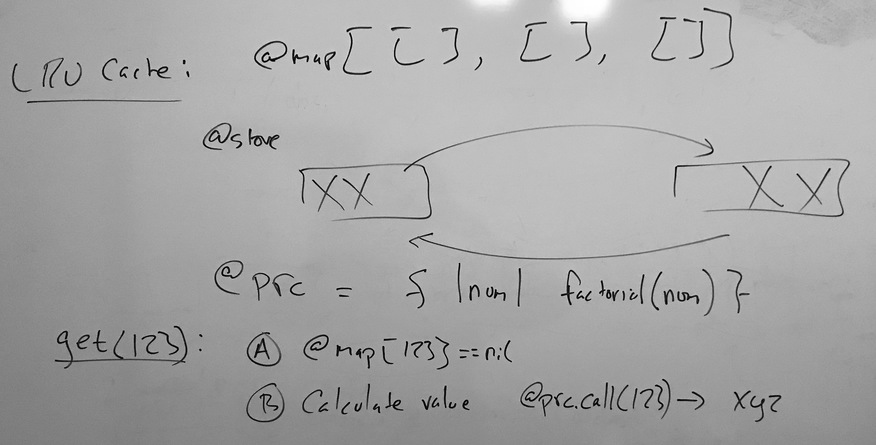 LRU Cache:
@map[ [ ], [ ], [ ] ]
@store
XX
XX
@prc = { |num| factorial(num) }
get(123):
(A) @map[123]==nil
(B) Calculate value @prc.call(123) → xyz